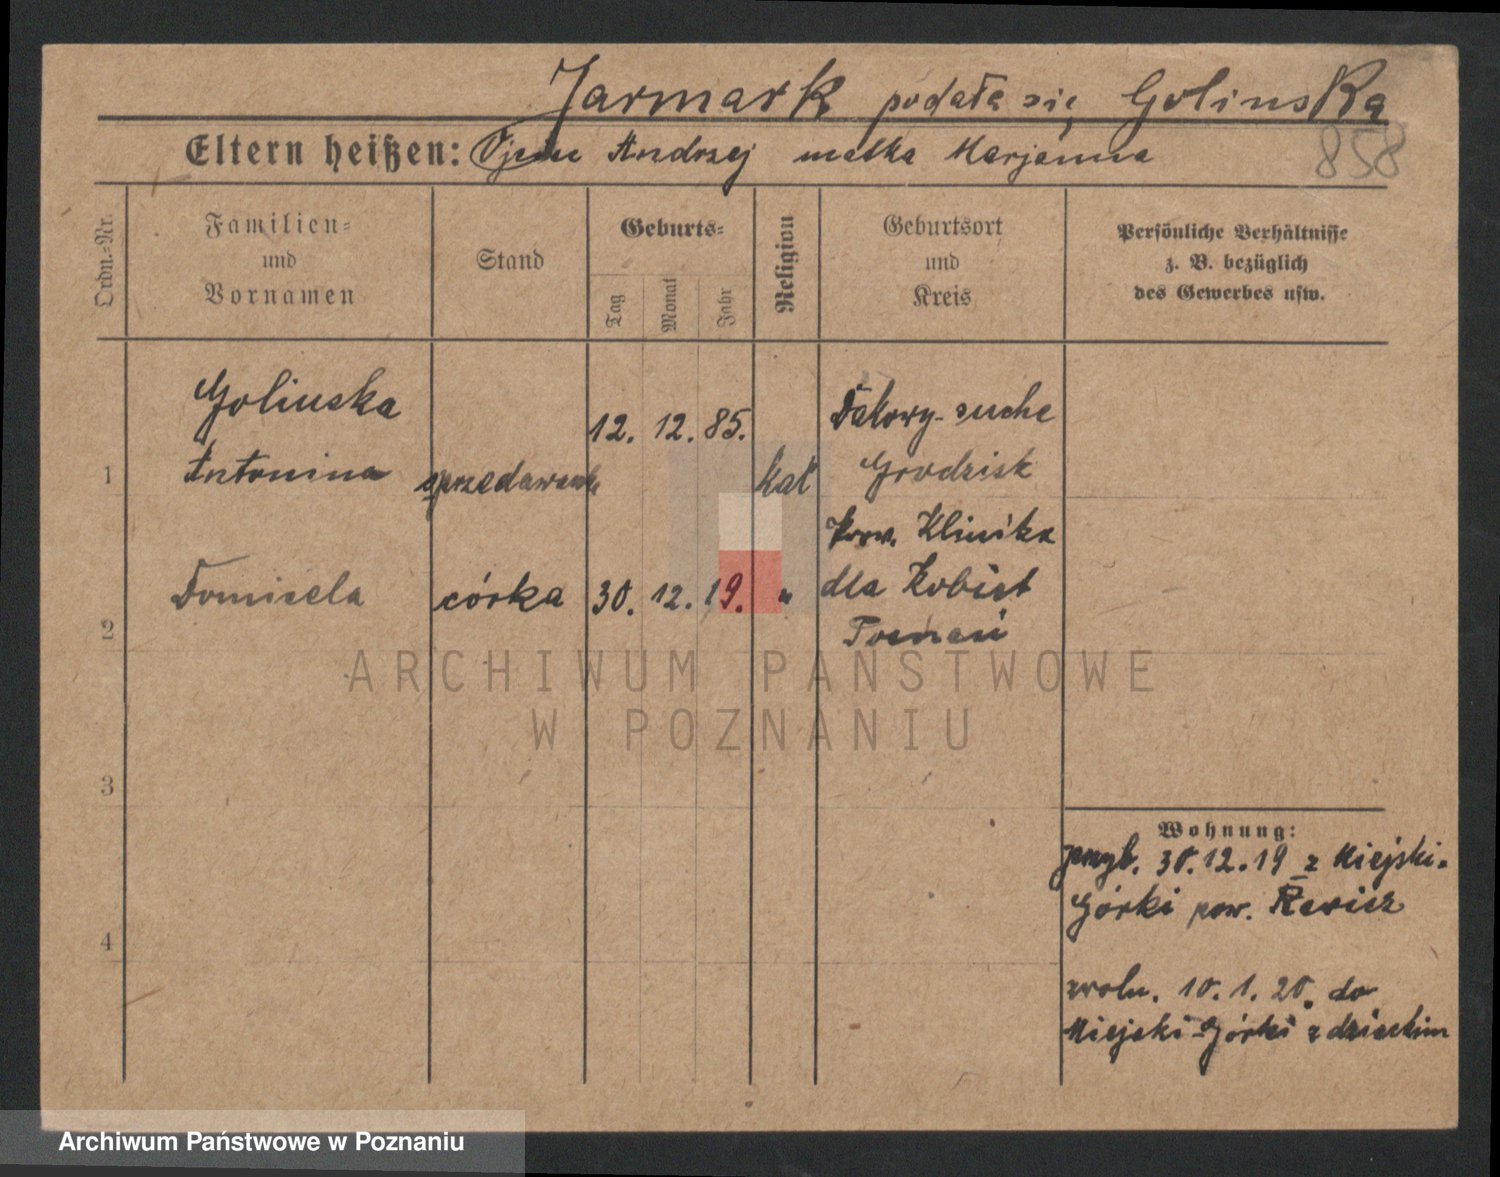 Jarmark podała się Golinska
858
Eltern heißen: Ojciec Andrzej matka Marjanna
Ordn.-Nr.
Familien-
und
Vornamen
Stand
Geburts-
Tag
Monat
Jahr
Religion
Geburtsort
und
Kreis
Persönliche Verhältnisse
z. B. bezüglich
des Gewerbes usw.
1
Golinska
Antonina
12. 12. 85.
kat
suche
Grodzisk
2
Domicela
córka
30. 12. 19.
"
Prow. Klinika
dla Kobiet
Poznań
3
4
Wohnung:
przyb. 30.12.19 z Miejski-
Górki pow. Rawicz
zwoln. 10. 1. 20. do
Miejski-Górki z dzieckim
ARCHIWUM PAŃSTWOWE
W POZNANIU
Archiwum Państwowe w Poznaniu